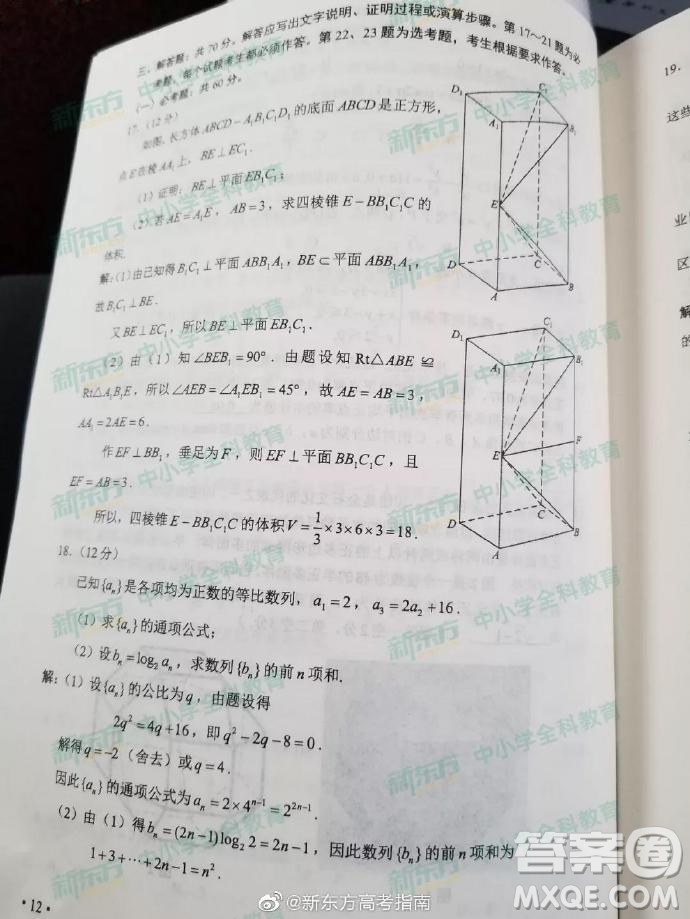 三、解答题：共 70 分。解答应写出文字说明、证明过程或演算步骤。第 17～21 题为必
考题，每个试题考生都必须作答。第 22、23 题为选考题，考生根据要求作答。
（一）必考题：共 60 分。
17.（12 分）
如图，长方体 ABCD－A₁B₁C₁D₁ 的底面 ABCD 是正方形，
点 E 在棱 AA₁ 上，BE⊥EC₁．
（1）证明：BE⊥平面EB₁C₁；
（2）若 AE＝A₁E，AB＝3，求四棱锥 E－BB₁C₁C 的
体积.
解：(1)由已知得 B₁C₁⊥平面 ABB₁A₁，BE⊂平面 ABB₁A₁，
故 B₁C₁⊥BE．
又 BE⊥EC₁，所以 BE⊥平面 EB₁C₁．
（2）由（1）知∠BEB₁＝90°．由题设知 Rt△ABE≌
Rt△A₁B₁E，所以∠AEB＝∠A₁EB₁＝45°，故 AE＝AB＝3，
AA₁＝2AE＝6．
作 EF⊥BB₁，垂足为 F，则 EF⊥平面 BB₁C₁C，且
EF＝AB＝3．
所以，四棱锥 E－BB₁C₁C 的体积 V＝1/3×3×6×3＝18．
18.（12 分）
已知{aₙ}是各项均为正数的等比数列，a₁＝2，a₃＝2a₂＋16．
（1）求{aₙ}的通项公式；
（2）设bₙ＝log₂ aₙ，求数列{bₙ}的前 n 项和.
解：（1）设{aₙ}的公比为q，由题设得
2q²＝4q＋16，即 q²－2q－8＝0．
解得q＝－2（舍去）或q＝4．
因此{aₙ}的通项公式为aₙ＝2×4ⁿ⁻¹＝2²ⁿ⁻¹．
（2）由（1）得bₙ＝(2n－1)log₂ 2＝2n－1，因此数列{bₙ}的前 n 项和为
1＋3＋⋯＋2n－1＝n²．
·12·
D₁
C₁
A₁
B₁
E
D
C
A
B
D₁
C₁
A₁
B₁
E
F
D
C
A
B
19.
这些
业
区
解
新东方 中小学全科教育
新东方 中小学全科教育
新东方 中小学全科教育
新东方 中小学全科教育
新东方 中小学全科教育
@新东方高考指南
答案圈
MXQE.COM